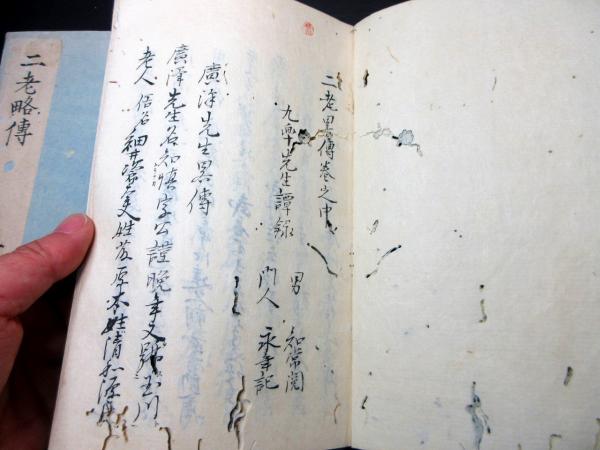 二老略傳
二老畧傳巻之中
九華先生譚録
男 知常閲
門人 永年記
廣澤先生畧傳
廣澤先生名知慎字公謹晩年又號玉川
老人俗名細井次郎大夫姓藤原本姓清和源氏